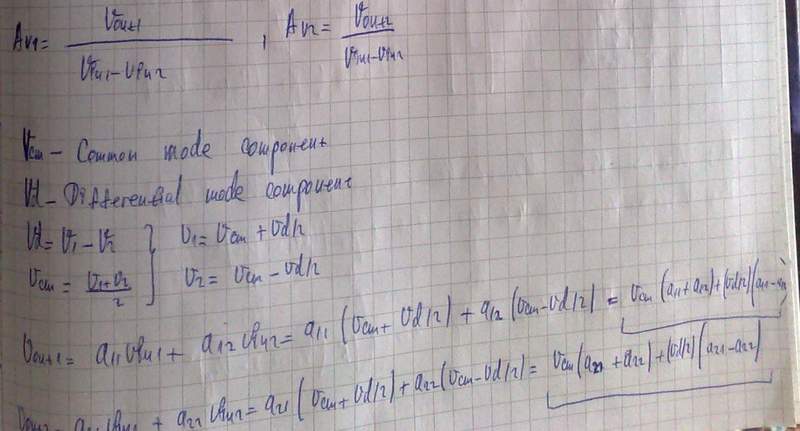 Av1 = Vout1 / (Vin1 - Vin2) , Av2 = Vout2 / (Vin1 - Vin2)
Vcm - Common mode component
Vd - Differential mode component
Vd = V1 - V2 } V1 = Vcm + Vd/2
Vcm = (V1 + V2) / 2 } V2 = Vcm - Vd/2
Vout1 = a11 Vin1 + a12 Vin2 = a11 (Vcm + Vd/2) + a12 (Vcm - Vd/2) = Vcm (a11 + a12) + (Vd/2) (a11 - a12)
Vout2 = a21 Vin1 + a22 Vin2 = a21 (Vcm + Vd/2) + a22 (Vcm - Vd/2) = Vcm (a21 + a22) + (Vd/2) (a21 - a22)